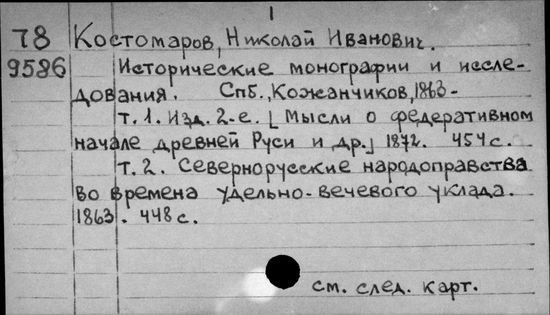 1
78 Костомаров, Николай Иванович.
9586 Исторические монографии и иссле-
дования. Спб., Кожанчиков, 1863-
т. 1. Изд. 2-е. [Мысли о федеративном
начале древней Руси и др.] 1872. 454 с.
т. 2. Севернорусские народоправства
во времена удельно-вечевого уклада.
1863. 448 с.
см. след. карт.